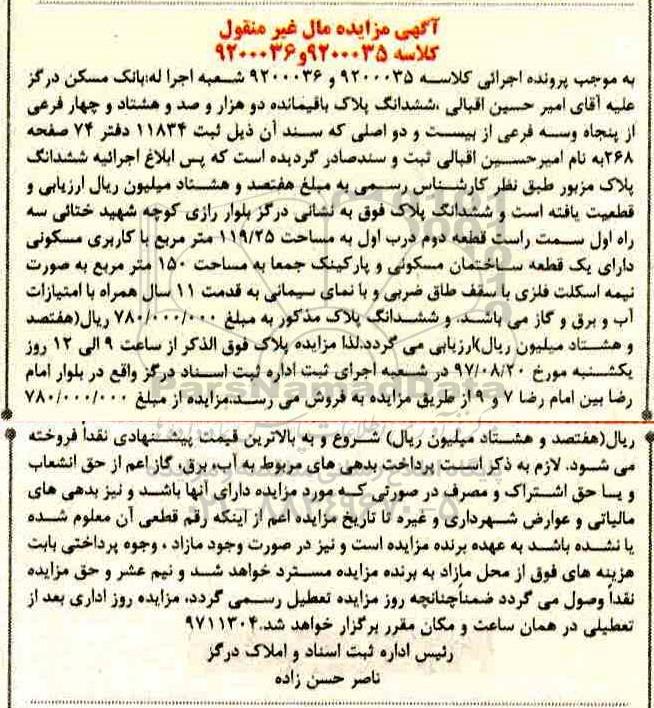 آگهی مزایده مال غیر منقول
کلاسه ۹۲۰۰۰۳۵و۹۲۰۰۰۳۶
به موجب پرونده اجرائی کلاسه ۹۲۰۰۰۳۵ و ۹۲۰۰۰۳۶ شعبه اجرا له:بانک مسکن درگز
علیه آقای امیر حسین اقبالی ،ششدانگ پلاک باقیمانده دو هزار و صد و هشتاد و چهار فرعی
از پنجاه وسه فرعی از بیست و دو اصلی که سند آن ذیل ثبت ۱۱۸۳۴ دفتر ۷۴ صفحه
۲۶۸به نام امیرحسین اقبالی ثبت و سندصادر گردیده است که پس ابلاغ اجرائیه ششدانگ
پلاک مزبور طبق نظر کارشناس رسمی به مبلغ هفتصد و هشتاد میلیون ریال ارزیابی و
قطعیت یافته است و ششدانگ پلاک فوق به نشانی درگز بلوار رازی کوچه شهید ختائی سه
راه اول سمت راست قطعه دوم درب اول به مساحت ۱۱۹/۲۵ متر مربع با کاربری مسکونی
دارای یک قطعه ساختمان مسکونی و پارکینک جمعا به مساحت ۱۵۰ متر مربع به صورت
نیمه اسکلت فلزی با سقف طاق ضربی و با نمای سیمانی به قدمت ۱۱ سال همراه با امتیازات
آب و برق و گاز می باشد. و ششدانگ پلاک مذکور به مبلغ ۷۸۰/۰۰۰/۰۰۰ ریال(هفتصد
و هشتاد میلیون ریال)ارزیابی می گردد.لذا مزایده پلاک فوق الذکر از ساعت ۹ الی ۱۲ روز
یکشنبه مورخ ۹۷/۰۸/۲۰ در شعبه اجرای ثبت اداره ثبت اسناد درگز واقع در بلوار امام
رضا بین امام رضا ۷ و ۹ از طریق مزایده به فروش می رسد.مزایده از مبلغ ۷۸۰/۰۰۰/۰۰۰
ریال(هفتصد و هشتاد میلیون ریال) شروع و به بالاترین قیمت پیشنهادی نقداً فروخته
می شود. لازم به ذکر است پرداخت بدهی های مربوط به آب، برق، گاز اعم از حق انشعاب
و یا حق اشتراک و مصرف در صورتی که مورد مزایده دارای آنها باشد و نیز بدهی های
مالیاتی و عوارض شهرداری و غیره تا تاریخ مزایده اعم از اینکه رقم قطعی آن معلوم شده
یا نشده باشد به عهده برنده مزایده است و نیز در صورت وجود مازاد ، وجوه پرداختی بابت
هزینه های فوق از محل مازاد به برنده مزایده مسترد خواهد شد و نیم عشر و حق مزایده
نقداً وصول می گردد ضمناًچنانچه روز مزایده تعطیل رسمی گردد، مزایده روز اداری بعد از
تعطیلی در همان ساعت و مکان مقرر برگزار خواهد شد.۹۷۱۱۳۰۴
رئیس اداره ثبت اسناد و املاک درگز
ناصر حسن زاده
ParsNamadData